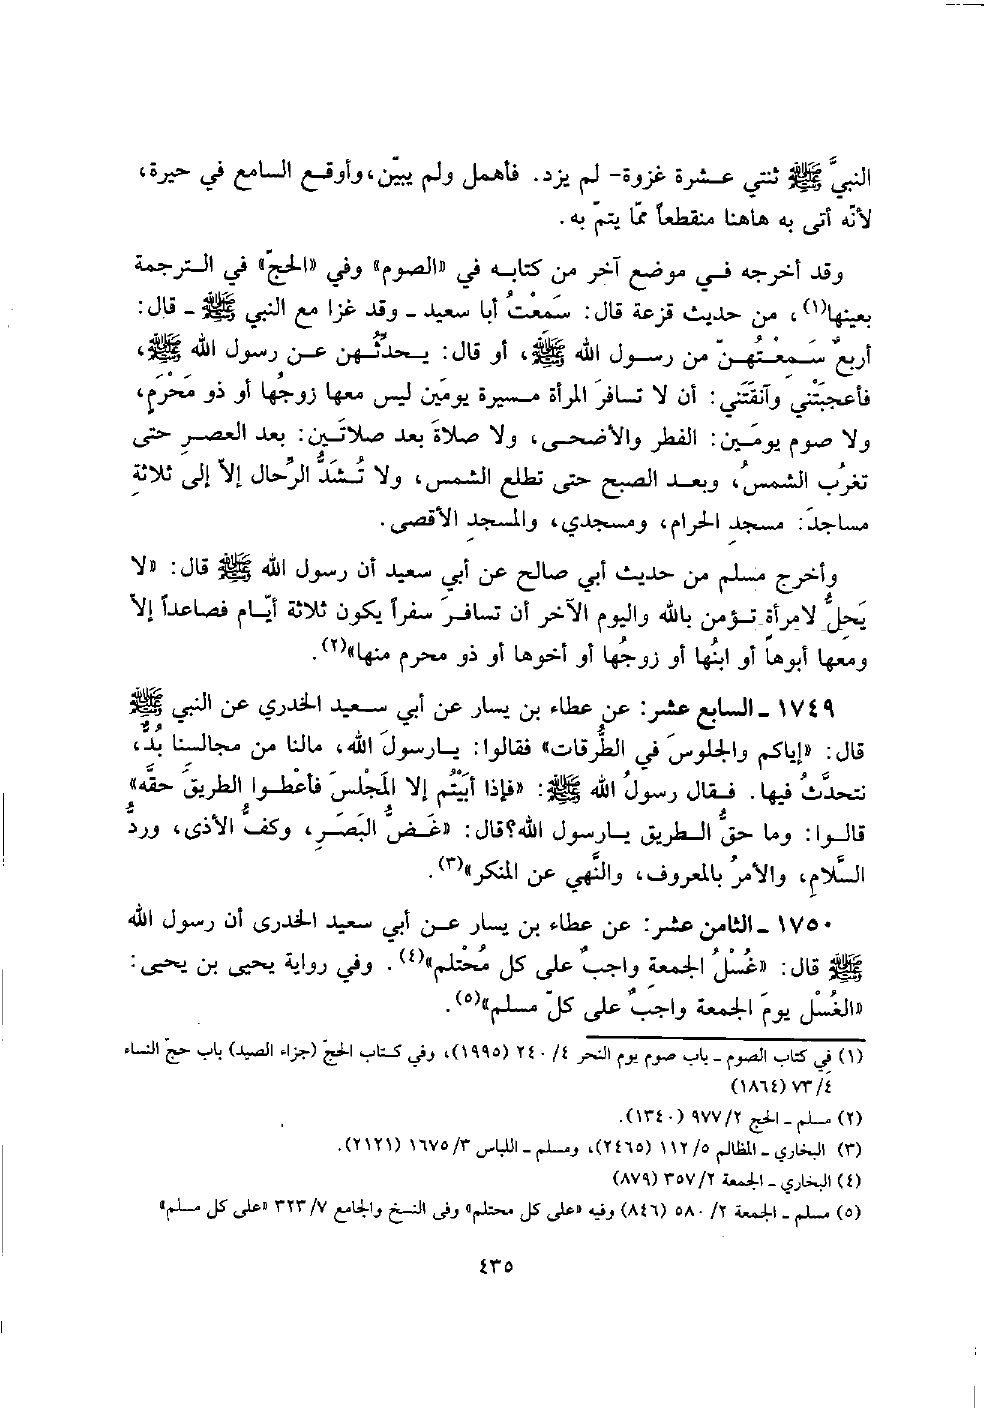 النبيَّ ﷺ ثنتي عشرة غزوة- لم يزد. فأهمل ولم يبيّن، وأوقع السامع في حيرة،
لأنّه أتى به هاهنا منقطعاً ممّا يتمّ به.
وقد أخرجه في موضع آخر من كتابه في «الصوم» وفي «الحجّ» في الترجمة
بعينها(١)، من حديث قزعة قال: سَمعْتُ أبا سعيد ـ وقد غزا مع النبي ﷺ ـ قال:
أربعٌ سَمِعْتُهنّ من رسول الله ﷺ، أو قال: يحدّثُهن عن رسول الله ﷺ،
فأعجبَتْني وآنقَتَني: أن لا تسافرَ المرأة مسيرة يومَين ليس معها زوجُها أو ذو مَحْرَم،
ولا صوم يومَين: الفطر والأضحى، ولا صلاةَ بعد صلاتَين: بعد العصرِ حتى
تغرُب الشمسُ، وبعد الصبح حتى تطلع الشمس، ولا تُشَدُّ الرِّحال إلاّ إلى ثلاثةِ
مساجدَ: مسجدِ الحرام، ومسجدي، والمسجدِ الأقصى.
وأخرج مسلم من حديث أبي صالح عن أبي سعيد أن رسول الله ﷺ قال: «لا
يَحِلُّ لامرأةٍ تؤمن بالله واليوم الآخر أن تسافرَ سفراً يكون ثلاثة أيّام فصاعداً إلاّ
ومعها أبوها أو ابنُها أو زوجُها أو أخوها أو ذو محرم منها»(٢).
١٧٤٩ ـ السابع عشر: عن عطاء بن يسار عن أبي سعيد الخدري عن النبي ﷺ
قال: «إياكم والجلوسَ في الطُّرقات» فقالوا: يارسولَ الله، مالنا من مجالسنا بُدٌّ،
نتحدَّثُ فيها. فقال رسولُ الله ﷺ: «فإذا أبَيْتُم إلا المَجْلسَ فأعْطوا الطريقَ حقَّه»
قالوا: وما حقُّ الطريق يارسول الله؟قال: «غَضُّ البَصَرِ، وكفُّ الأذى، وردُّ
السَّلامِ، والأمرُ بالمعروف، والنَّهي عن المنكر»(٣).
١٧٥٠ ـ الثامن عشر: عن عطاء بن يسار عن أبي سعيد الخدرى أن رسول الله
ﷺ قال: «غُسْلُ الجمعةِ واجبٌ على كل مُحْتلم»(٤). وفي رواية يحيى بن يحيى:
«الغُسْل يومَ الجمعة واجبٌ على كلّ مسلم»(٥).
(١) في كتاب الصوم ـ باب صوم يوم النحر ٤/ ٢٤٠ (١٩٩٥)، وفي كتاب الحجّ (جزاء الصيد) باب حجّ النساء
٧٣/٤ (١٨٦٤)
(٢) مسلم ـ الحج ٩٧٧/٢ (١٣٤٠).
(٣) البخاري ـ المظالم ١١٢/٥ (٢٤٦٥)، ومسلم ـ اللباس ١٦٧٥/٣ (٢١٢١).
(٤) البخاري ـ الجمعة ٣٥٧/٢ (٨٧٩)
(٥) مسلم ـ الجمعة ٥٨٠/٢ (٨٤٦) وفيه «على كل محتلم» وفى النسخ والجامع ٣٢٣/٧ «على كل مسلم»
٤٣٥